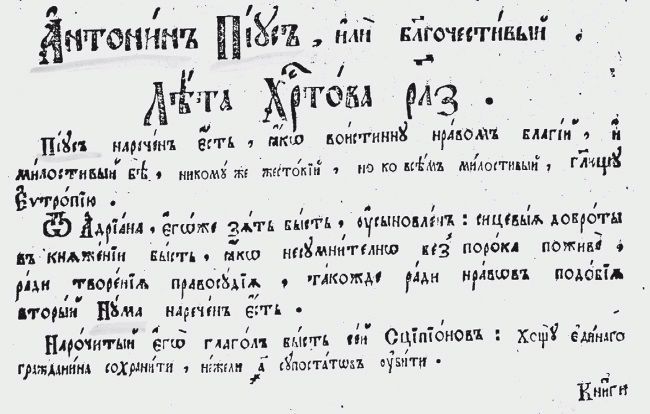 А҆нтони́нъ Пі́усъ, и҆лѝ бл҃гочести́вый.
Лѣ́та Хр҇то́ва рл҃з.
Пі́усъ нарече́нъ є҆́сть, ꙗ҆́кѡ вои́стинну нра́вомъ благі́й, и҆
ми́лостивый бѣ̀, никому́же жесто́кїй, но ко всѣ́мъ ми́лостивый, гл҃ющу
Є҆утро́пїю.
Ѿ А҆дрїа́на, є҆гѡ́же зѧ́ть бы́сть, ᲂу҆сыновле́нъ: сицевы́ѧ добро́ты
въ кнѧже́нїи бы́сть, ꙗ҆́кѡ несумни́телнѡ без̾ поро́ка поживѐ,
ра́ди творе́нїѧ правосу́дїѧ, та́кожде ра́ди нра́вѡвъ подо́бїѧ
вторы́й Ну́ма нарече́нъ є҆́сть.
Наро́читый є҆гѡ̀ глаго́лъ бы́сть се́й Сципїо́новъ: Хощу̀ є҆ди́наго
гражда́нина сохрани́ти, не́жели а҃ супоста́тѡвъ ᲂу҆би́ти.
Кни́ги